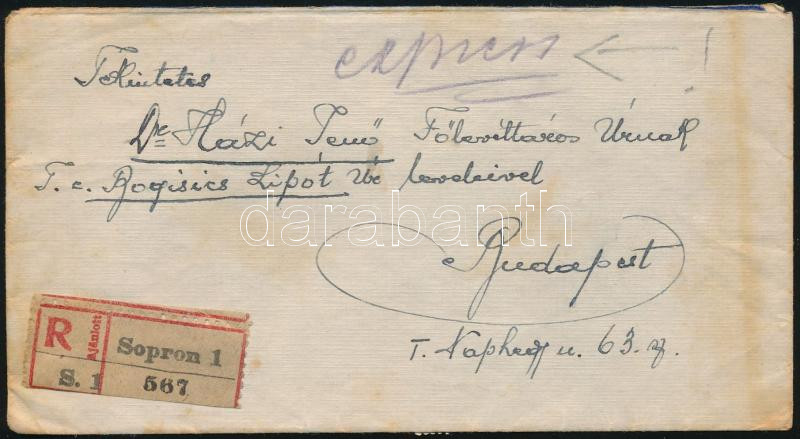 express !
Tekintetes
Dr Házi Jenő Főlevéltáros Úrnak
T. c. Rogisics Lipót Úr levelével
darabanth
Budapest
I. Naphegy u. 63. sz.
R Ajánlott
Sopron 1
S. 1 567